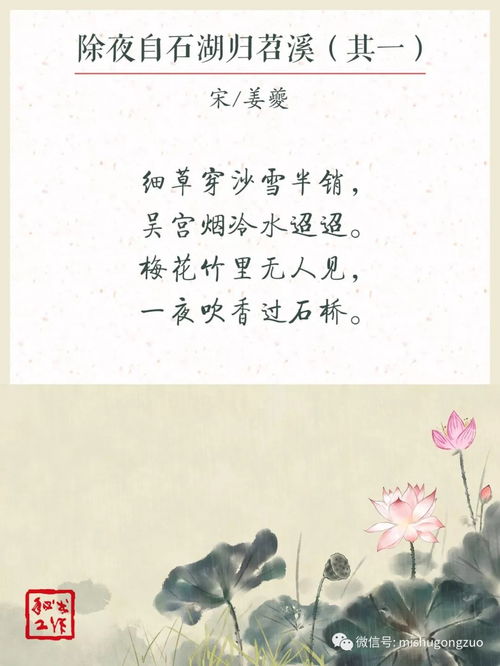 除夜自石湖归苕溪（其一）
宋/姜夔
细草穿沙雪半销，
吴宫烟冷水迢迢。
梅花竹里无人见，
一夜吹香过石桥。
秘书
工作
微信号: mishugongzuo